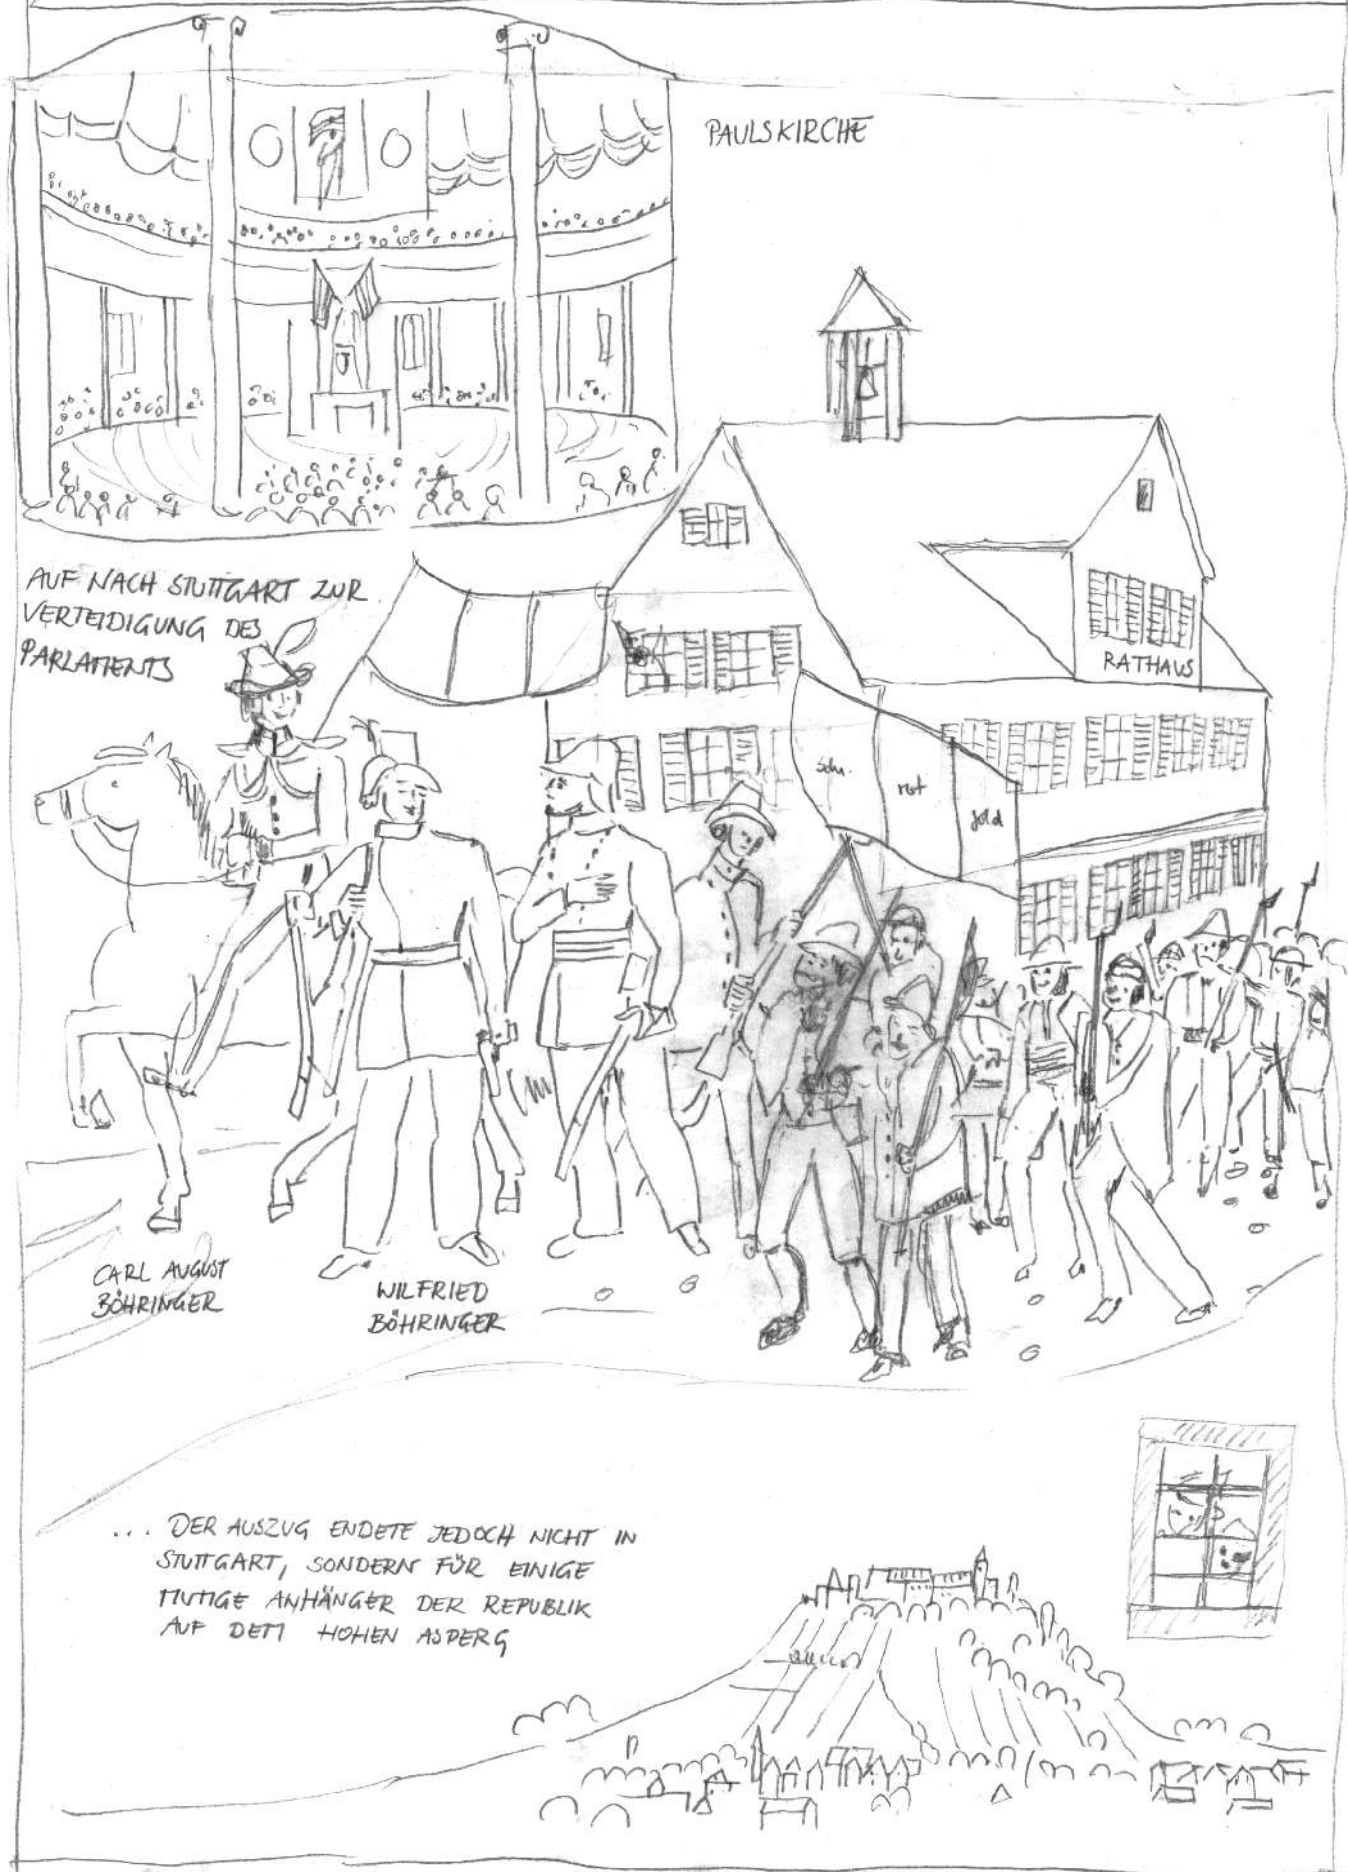 PAULSKIRCHE
AUF NACH STUTTGART ZUR
VERTEIDIGUNG DES
PARLAMENTS
RATHAUS
schw.
rot
gold
CARL AUGUST
BÖHRINGER
WILFRIED
BÖHRINGER
... DER AUSZUG ENDETE JEDOCH NICHT IN
STUTTGART, SONDERN FÜR EINIGE
MUTIGE ANHÄNGER DER REPUBLIK
AUF DEM HOHEN ASPERG